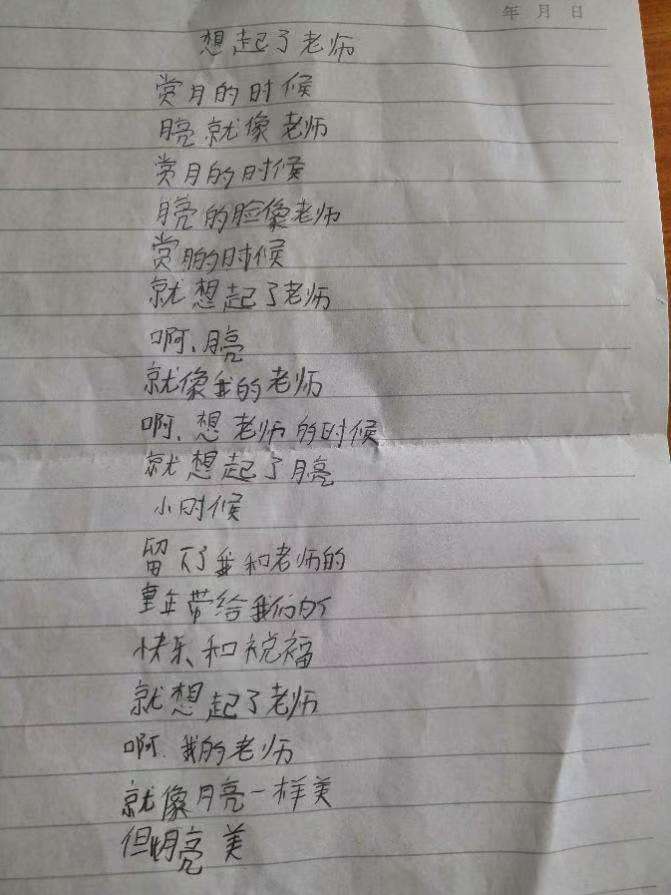 年 月 日
想起了老师
赏月的时候
月亮就像老师
赏月的时候
月亮的脸像老师
赏月的时候
就想起了老师
啊、月亮
就像我的老师
啊、想老师的时候
就想起了月亮
小时候
留下了我和老师的
童年带给我们的
快乐和祝福
就想起了老师
啊、我的老师
就像月亮一样美
但比月亮美